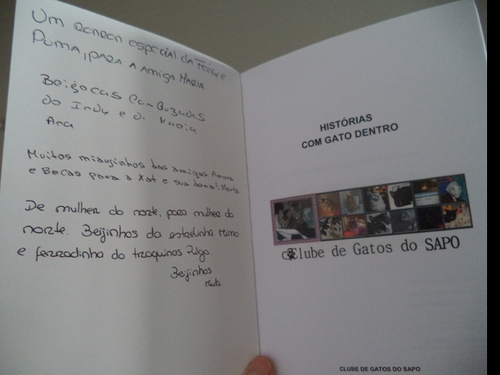 Um ronron especial da
Puma, para a amiga Maria
Beijocas
do Indy e di Maria
Ana
Muitos miaujinhos das amigas
e Bocas para a Kat e sua dona!
De mulher do norte, para mulher do
norte. Beijinhos da estadinha Mimo
e ferradinha do traquinas
Beijinhos
HISTÓRIAS
COM GATO DENTRO
Clube de Gatos do SAPO
CLUBE DE GATOS DO SAPO